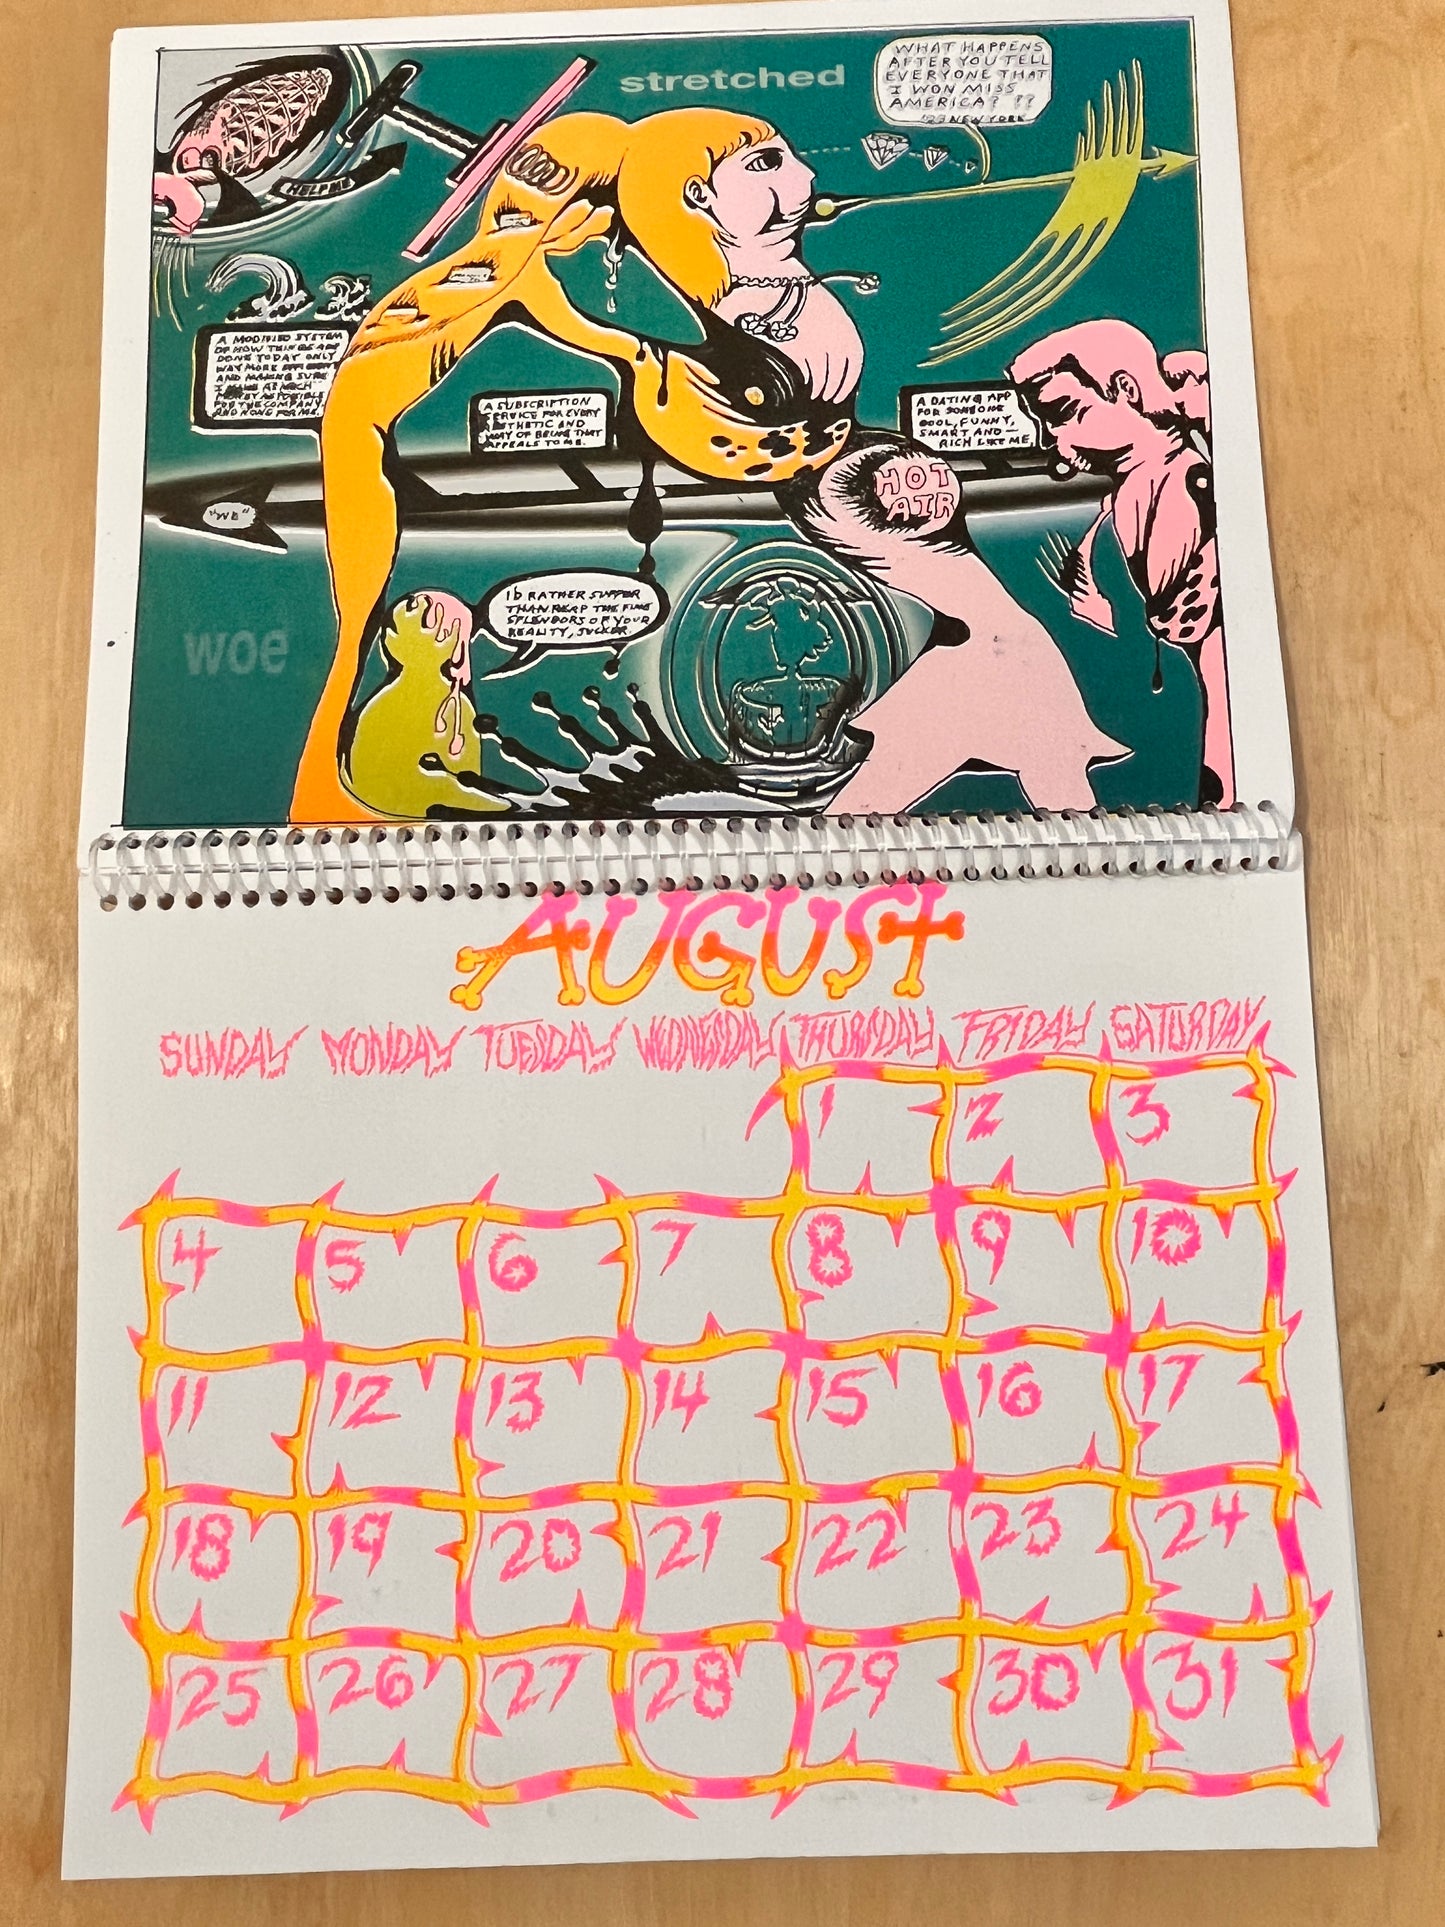 stretched
WHAT HAPPENS
AFTER YOU TELL
EVERYONE THAT
I WON MISS
AMERICA? ??
'23 NEW YORK
HELP ME
A MODIFIED SYSTEM
OF HOW THINGS ARE
DONE TODAY ONLY
WAY MORE EFFICIENT
AND MAKING SURE
I MAKE AS MUCH
MONEY AS POSSIBLE
FOR THE COMPANY
AND NONE FOR ME.
A SUBSCRIPTION
SERVICE FOR EVERY
AESTHETIC AND
WAY OF BEING THAT
APPEALS TO ME.
A DATING APP
FOR SOMEONE
COOL, FUNNY,
SMART AND —
RICH LIKE ME.
HOT
AIR
"WE"
woe
ID RATHER SUFFER
THAN REAP THE FINE
SPLENDORS OF YOUR
REALITY, SUCKER.
AUGUST
SUNDAY MONDAY TUESDAY WEDNESDAY THURSDAY FRIDAY SATURDAY
1 2 3
4 5 6 7 8 9 10
11 12 13 14 15 16 17
18 19 20 21 22 23 24
25 26 27 28 29 30 31